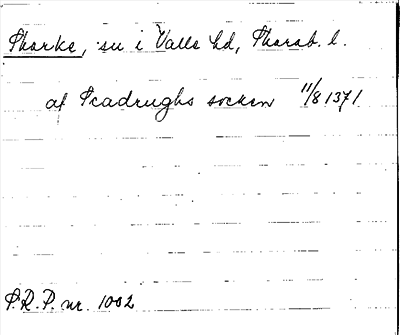 Skorke, su i Valle hd, Skarab. l.
af Scadrughs socken 11/8 1371
S.R.P. nr. 1002